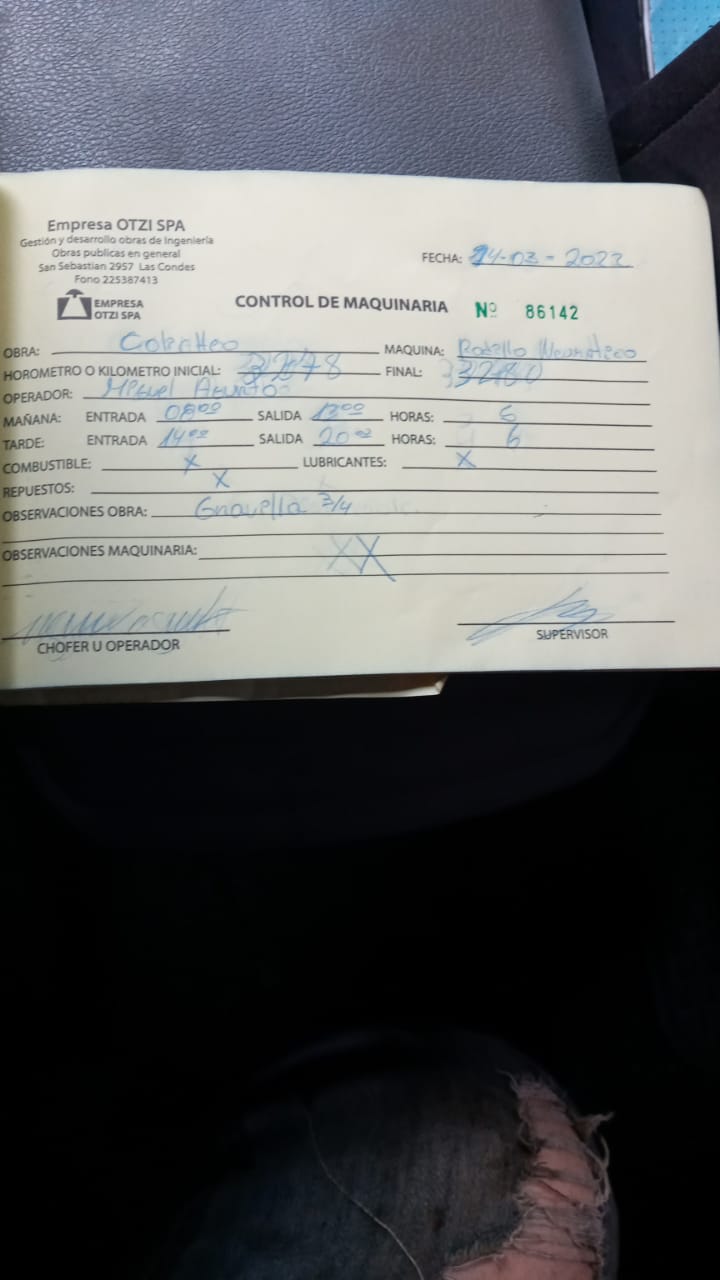 Empresa OTZI SPA
Gestión y desarrollo obras de Ingeniería
Obras publicas en general
San Sebastian 2957 Las Condes
Fono 225387413
EMPRESA
OTZI SPA
FECHA: 24-03-2022
CONTROL DE MAQUINARIA Nº 86142
OBRA: MAQUINA: Rodillo Neumatico
HOROMETRO O KILOMETRO INICIAL: 3278 FINAL: 3280
OPERADOR: Miguel
MAÑANA: ENTRADA 08:00 SALIDA 13:00 HORAS:
TARDE: ENTRADA 14:00 SALIDA 20:00 HORAS: 6
COMBUSTIBLE: X LUBRICANTES: X
REPUESTOS: X
OBSERVACIONES OBRA: Gravilla 3/4
OBSERVACIONES MAQUINARIA: XX
CHOFER U OPERADOR SUPERVISOR